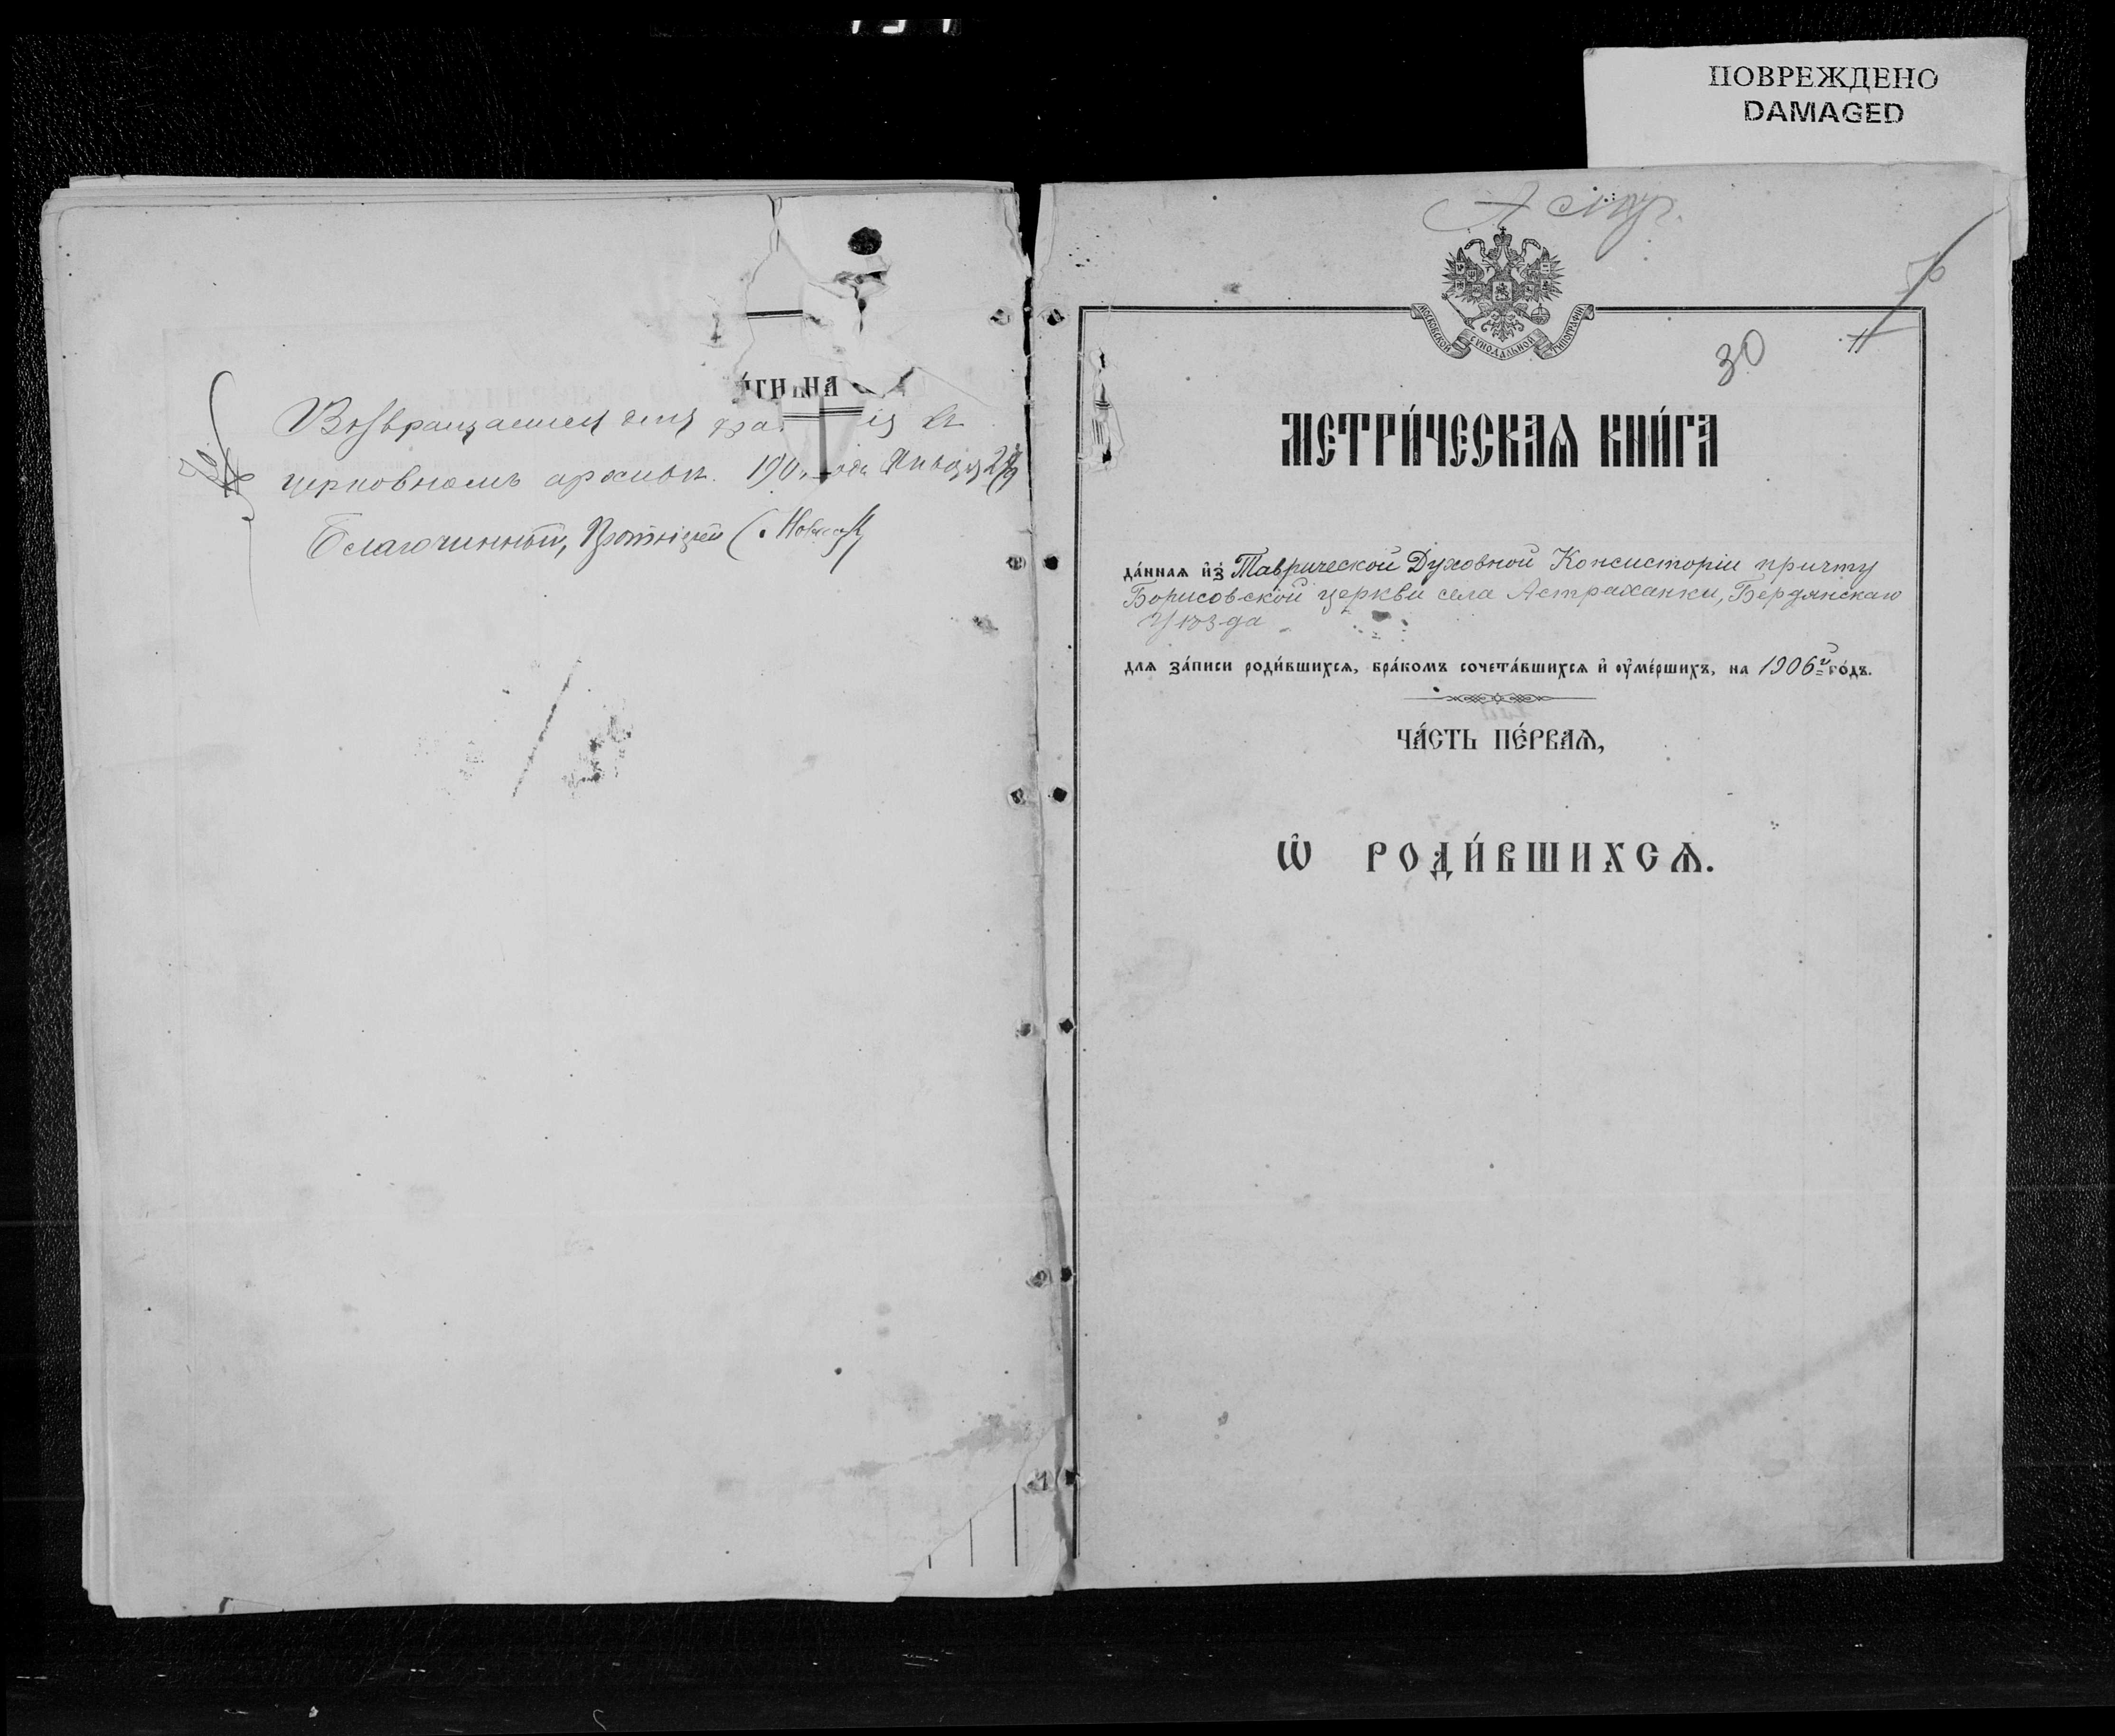 ПОВРЕЖДЕНО
DAMAGED
Возвращается для хра ія въ
церковномъ архивѣ. 190 года Января 29
Благочинный, Протоіерей
30
МОСКОВСКОЙ СУНОДАЛЬНОЙ ТИПОГРАФІИ
МЕТРИ́ЧЕСКАѦ КНИ́ГА
да́ннаѧ и҆з̾ Таврической Духовной Консисторіи причту
Борисовской церкви села Астраханки, Бердянскаго
Уѣзда
длѧ за́писи роди́вшихсѧ, бра́комъ сочета́вшихсѧ и҆ ѹ҆ме́ршихъ, на 1906й го́дъ.
ЧА́СТЬ ПЕ́РВАѦ,
Ѡ҆ РОДИ́ВШИХСѦ.